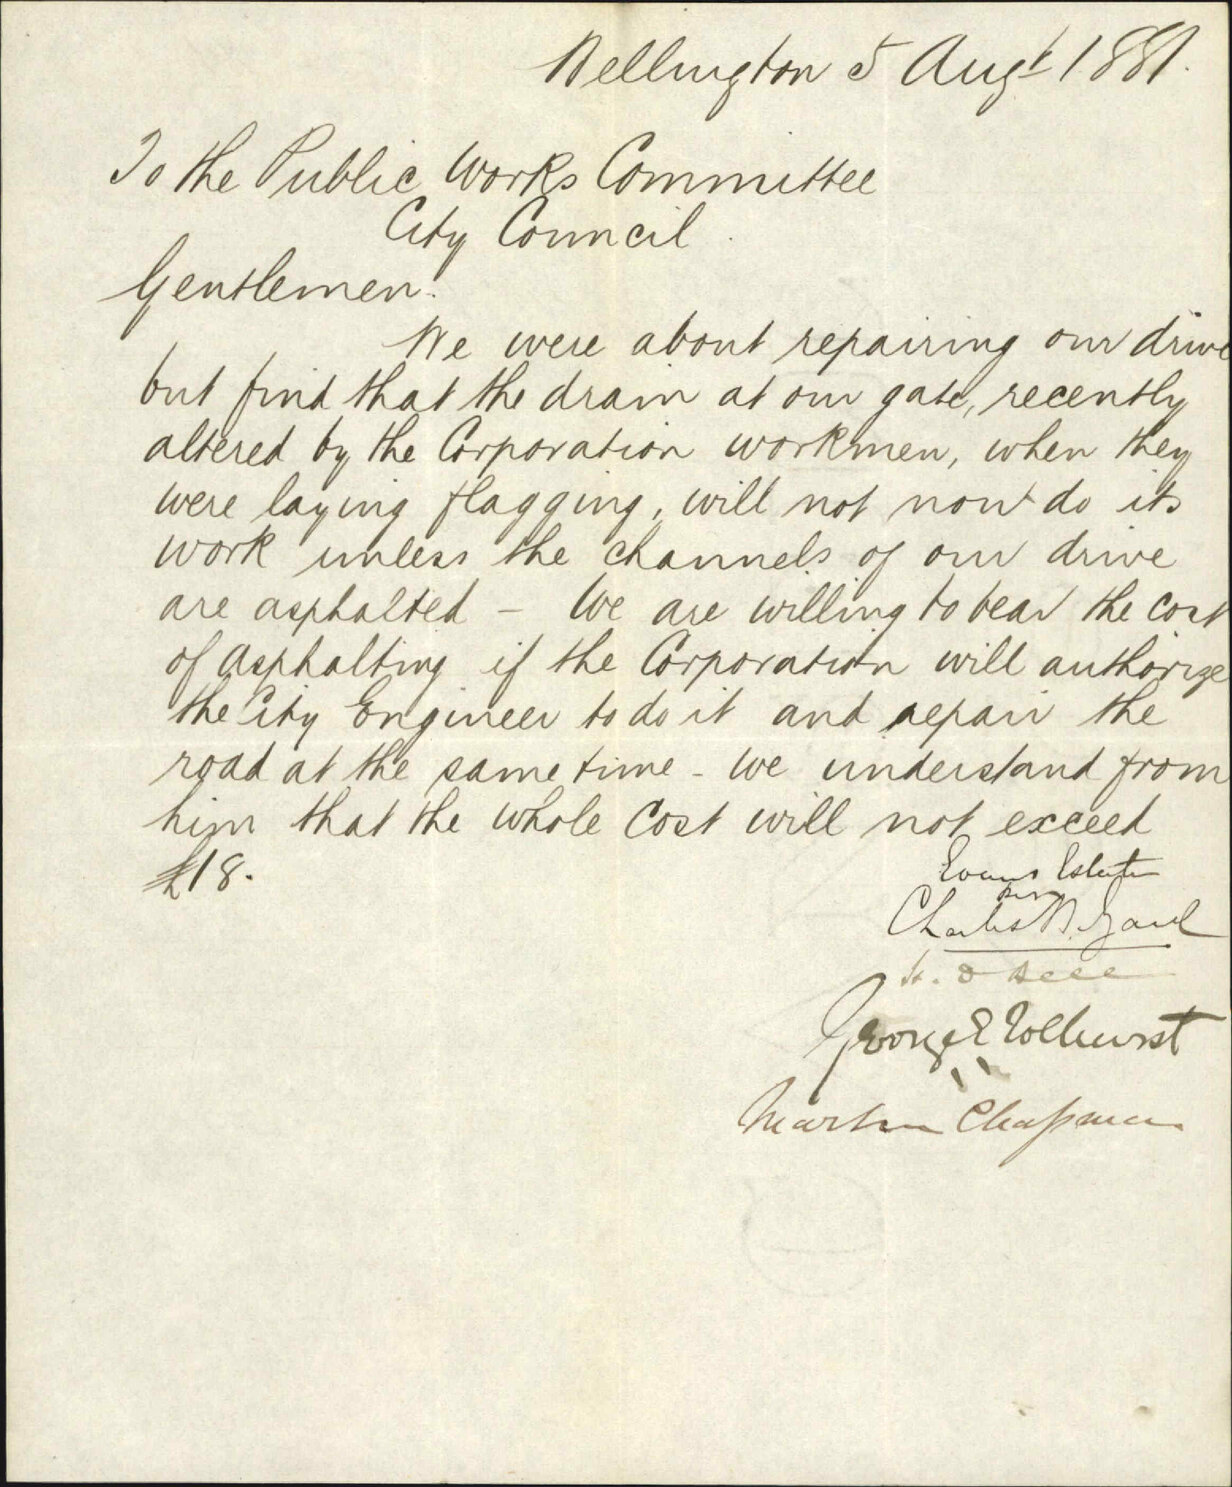 Wellington 5 Augt 1881.
To the Public Works Committee
City Council.
Gentlemen.
We were about repairing our drive
but find that the drain at our gate, recently
altered by the Corporation workmen, when they
were laying flagging, will not now do its
work unless the channels of our drive
are asphalted – We are willing to bear the cost
of asphalting if the Corporation will authorize
the City Engineer to do it and repair the
road at the same time - We understand from
him that the whole cost will not exceed
£18.
Evans
Charles
H. D Bell
George E Tolhurst
Martin Chapman